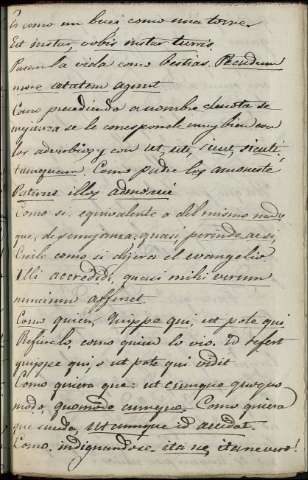 Es como un buei como una torre.
Est instar, bobis instar turris
Pasan la vida como bestias. Pecudum
more ætatem agunt
Como precediendo a nombre denota se
mejanza se le corresponde muy bien con
los adverbios y con ut, uti, sicut, sicuti
tamquam. Como padre los amonesté
Patriae illos admonui
Como si, equivalente a del mismo modo
que, de semejanza: quasi, perinde ac si,
Creile como si dijera el evangelio
Illi accredidi, quasi mihi verum
nuncium afferret
Como quien, Quippe qui, ut pote qui,
Refierelo, como quien lo vio. Id refert
quippe qui, o ut pote qui vidit
Como quiera que: ut cumque quoquo
modo, quomodo cumque. Como quiera
que suceda, Ut cumque id accidat
Como, indignandose, ita ne, itane vero!